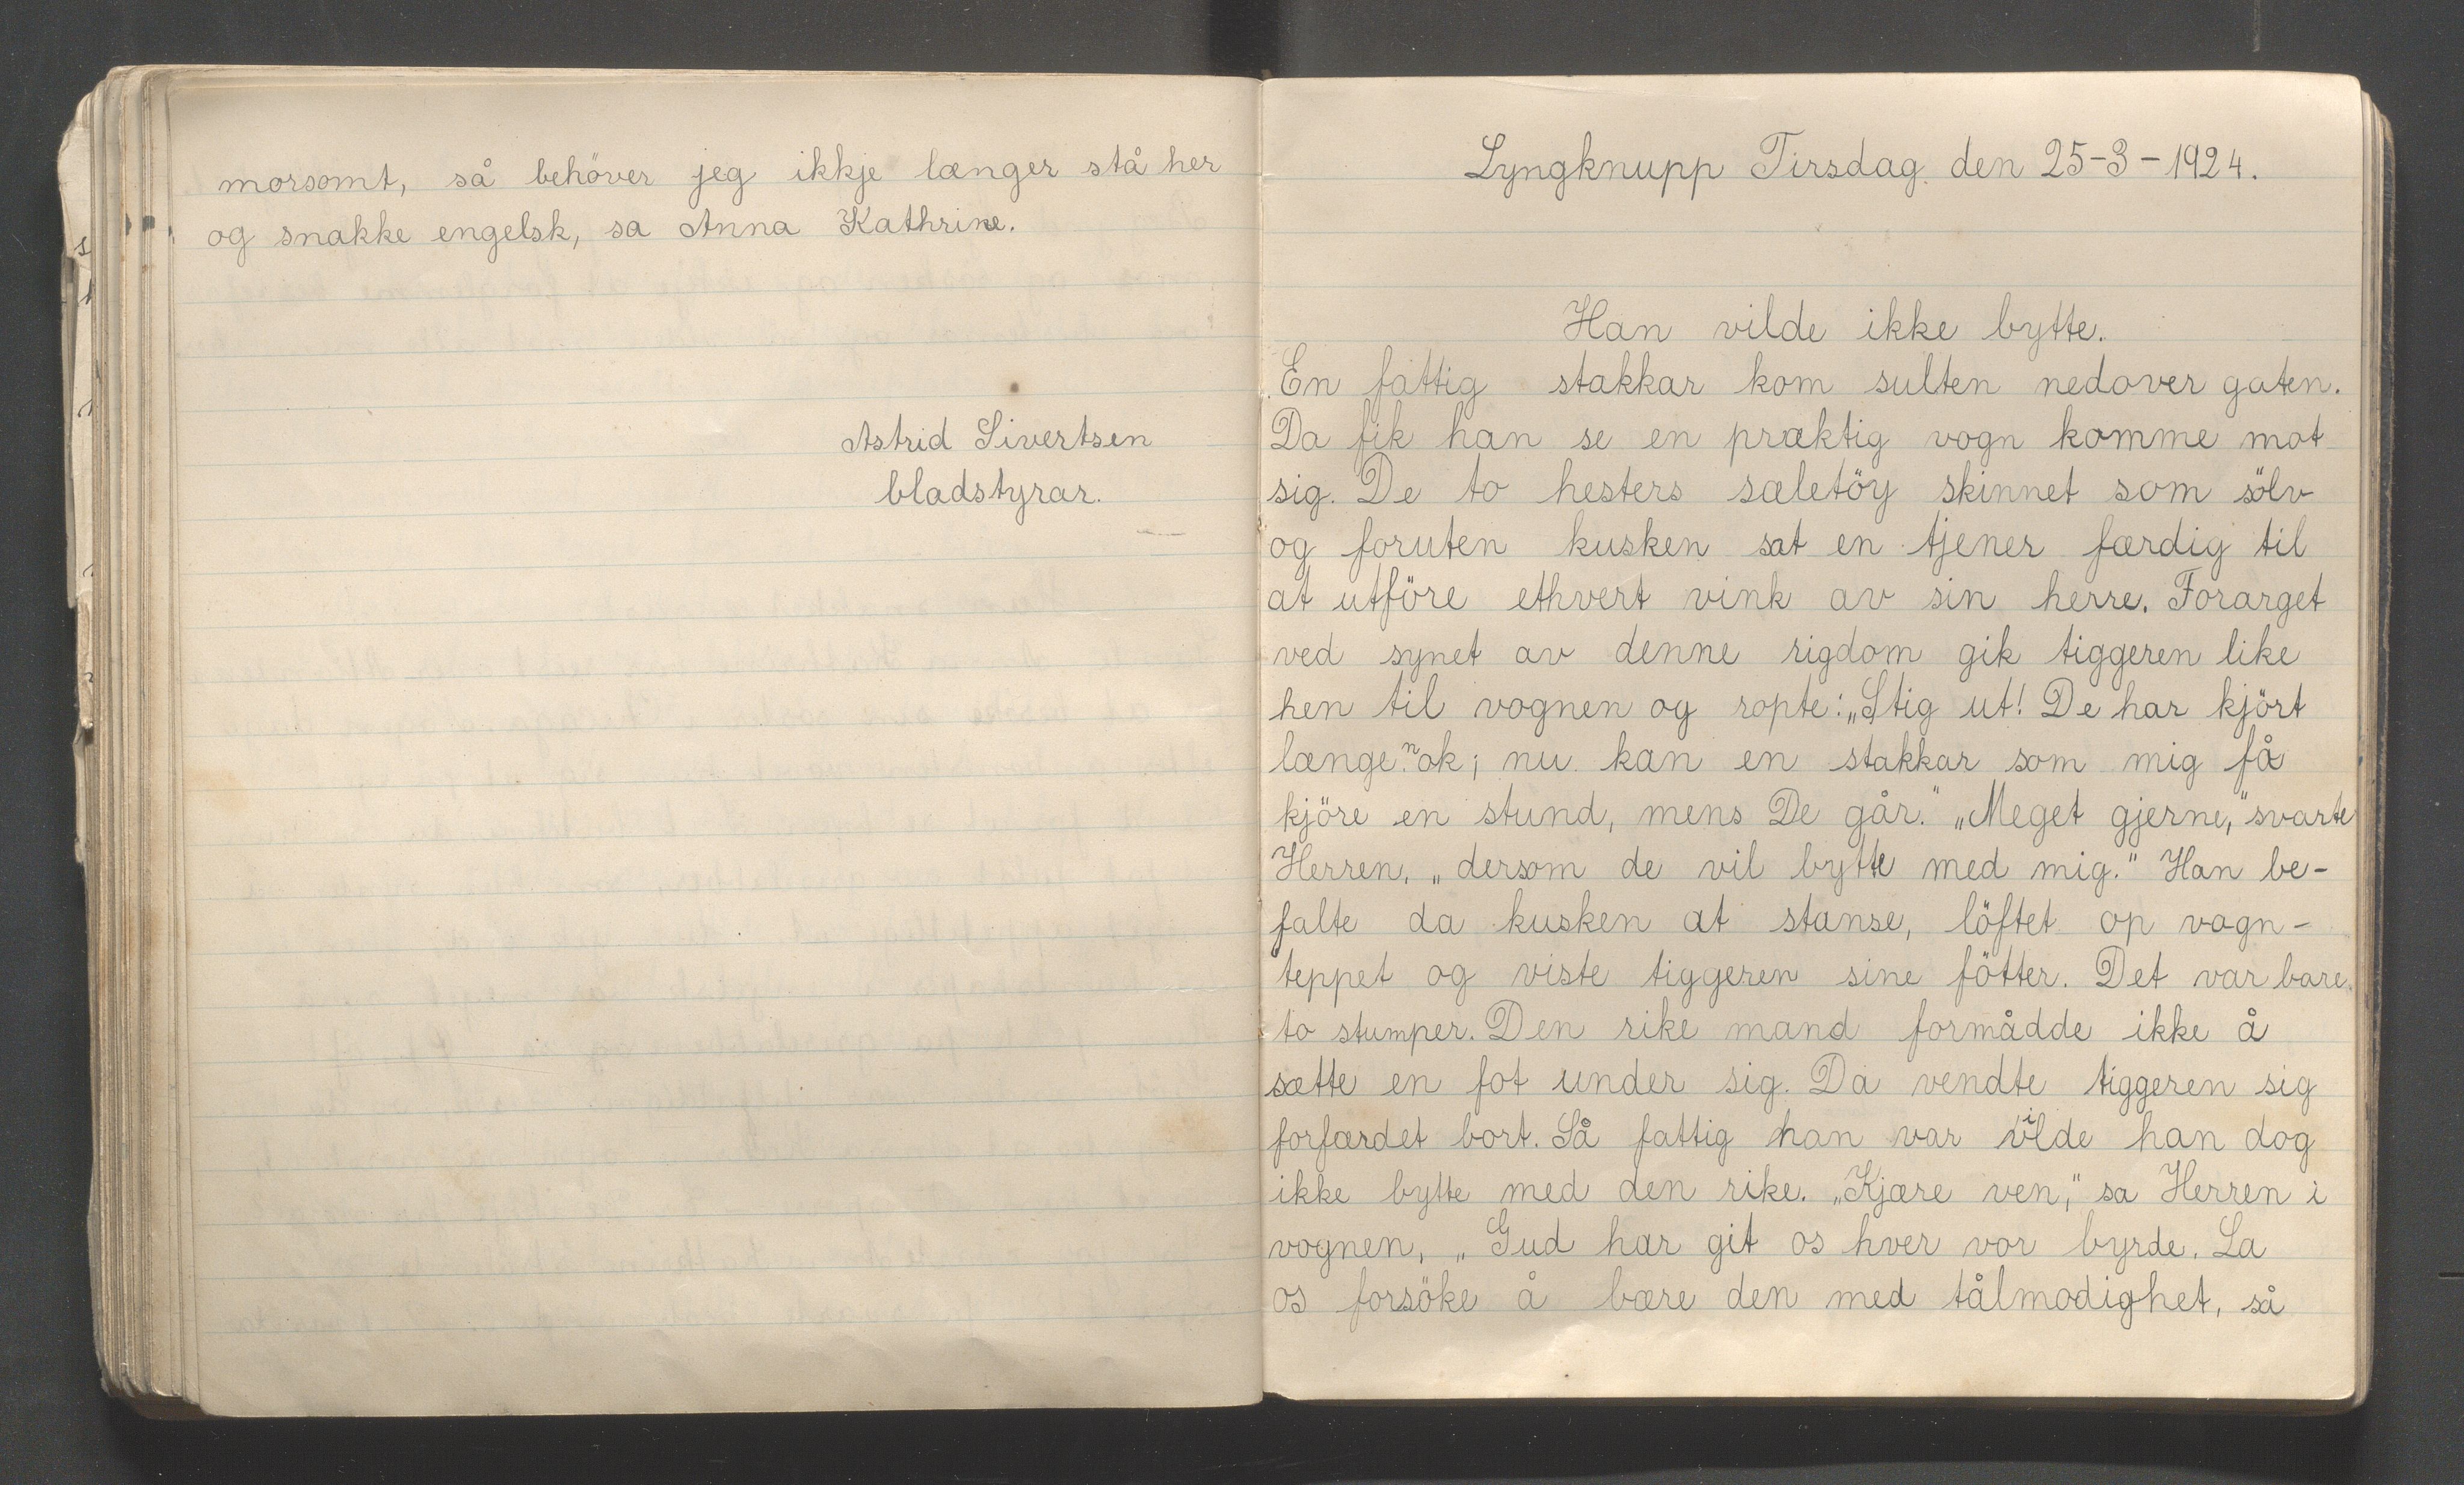 morsomt, så behöver jeg ikkje længer stå her
og snakke engelsk, sa Anna Kathrine.
Astrid Sivertsen
bladstyrar.
Lyngknupp Tirsdag den 25-3-1924.
Han vilde ikke bytte.
En fattig stakkar kom sulten nedover gaten.
Da fik han se en præktig vogn komme mot
sig. De to hesters sæletöy skinnet som sölv
og foruten kusken sat en tjener færdig til
at utföre ethvert vink av sin herre. Forarget
ved synet av denne rigdom gik tiggeren like
hen til vognen og ropte: „Stig ut! De har kjört
længe nok; nu kan en stakkar som mig få
kjöre en stund, mens De går.” „Meget gjerne,” svarte
Herren, „dersom de vil bytte med mig.” Han be-
falte da kusken at stanse, löftet op vogn-
teppet og viste tiggeren sine fötter. Det var bare
to stumper. Den rike mand formådde ikke å
sætte en fot under sig. Da vendte tiggeren sig
forfærdet bort. Så fattig han var vilde han dog
ikke bytte med den rike. „Kjære ven,” sa Herren i
vognen, „Gud har git os hver vor byrde. La
os forsöke å bære den med tålmodighet, så